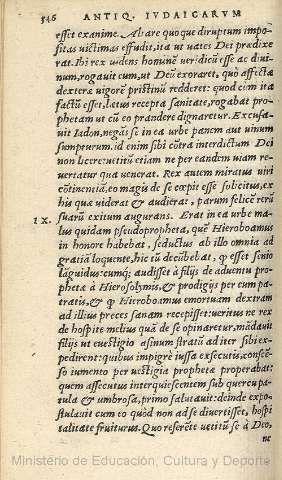 546 ANTIQ. IVDAICARVM
esset exanime. At are quoque diruptum impositas
victimas effudit, ita ut uates Dei prædixerat.
Ibi rex uidens hominē ueridicū esse ac diuinum,
rogauit eum, ut Deū exoraret, quò affectæ
dexteræ uigorē pristinū redderet: quod cum ita
factū esset, lætus recepta sanitate, rogabat prophetam
ut cū eo prandere dignaretur. Excusauit
Iadon, negās se in ea urbe panem aut uinum
sumpturum. id enim sibi cōtra interdictum Dei
non licere: uetitū etiam ne per eandem uiam reuertatur
qua uenerat. Rex autem miratus uiri
cōtinentiā, eo magis de se cœpit esse solicitus, ex
his quæ uiderat & audierat, parum felicē rerū
suarū exitum augurans. Erat in ea urbe malus
IX.
quidam pseudopropheta, quē Hieroboamus
in honore habebat, seductus ab illo omnia ad
gratiā loquente, hic tū decūbebat, ꝙ esset senio
lāguidus: cumꝗ; audisset à filijs de aduentu prophetæ
à Hierosolymis, & prodigijs per eum patratis,
& ꝙ Hieroboamus emortuam dextram
ad illius preces sanam recepisset: ueritus ne rex
de hospite melius quā de se opinaretur, mādauit
filijs ut euestigio asinum stratū ad iter sibi expedirent:
quibus impigrè iussa executis, conscēso
iumento per uestigia prophetæ properabat:
quem assecutus interquiescentem sub quercu patula
& umbrosa, primo salutauit: deinde expostulauit
cum eo quòd non ad se diuertisset, hospitalitate
fruiturus. Quo referēte uetitū se à Deo,
ne
Ministerio de Educación, Cultura y Deporte